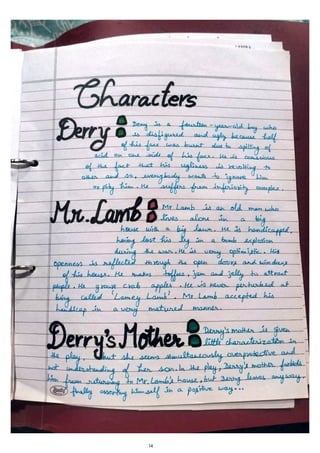 Characters
Derry : Derry is a fourteen-year-old boy who
is disfigured and ugly because half
of his face was burnt due to spilling of
acid on one side of his face. He is conscious
of the fact that his ugliness is revolting to
other and so, everybody wants to ignore him
or pity him. He suffers from inferiority complex.
Mr. Lamb : Mr Lamb is an old man who
lives alone in a big
house with a big lawn. He is handicapped,
having lost his leg in a bomb explosion
during the war. He is very optimistic. His
openness is reflected through the open doors and windows
of his house. He makes toffees, jam and jelly to attract
people. He grows crab apples. He is never perturbed at
being called 'Lamey Lamb'. Mr Lamb accepted his
handicap in a very matured manner.
Derry's Mother : Derry's mother is given
little characterization in
the play, but she seems simultaneously overprotective and
not understanding of her son. In the play, Derry's mother forbids
him from returning to Mr. Lamb's house, but Derry leaves anyway,
finally asserting himself in a positive way...
14